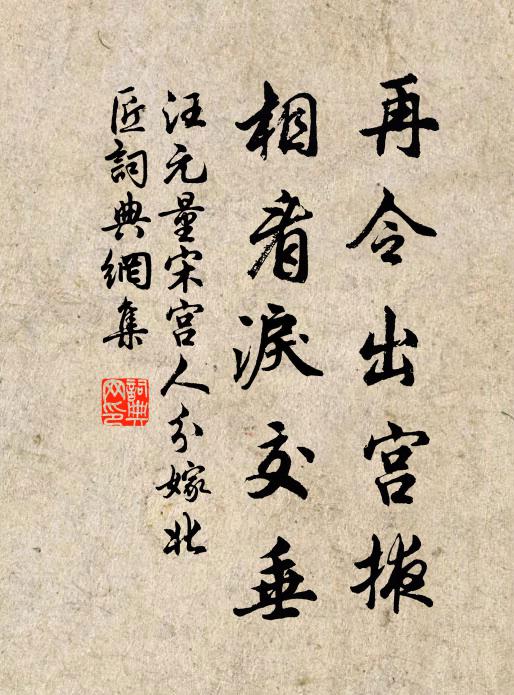 再令出宫掖
相看淚交垂
汪元量宋宫人分嫁北
匠詞典網集
詞典网印